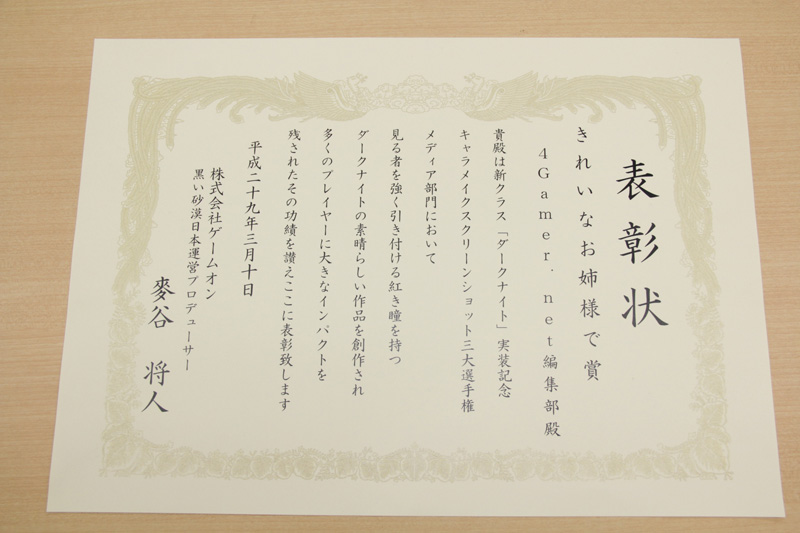 表彰状
きれいなお姉様で賞
4Gamer.net編集部殿
貴殿は新クラス「ダークナイト」実装記念
キャラメイクスクリーンショット三大選手権
メディア部門において
見る者を強く引き付ける紅き瞳を持つ
ダークナイトの素晴らしい作品を創作され
多くのプレイヤーに大きなインパクトを
残されたその功績を讃えここに表彰致します
平成二十九年三月十日
株式会社ゲームオン
黒い砂漠日本運営プロデューサー
麥谷 将人